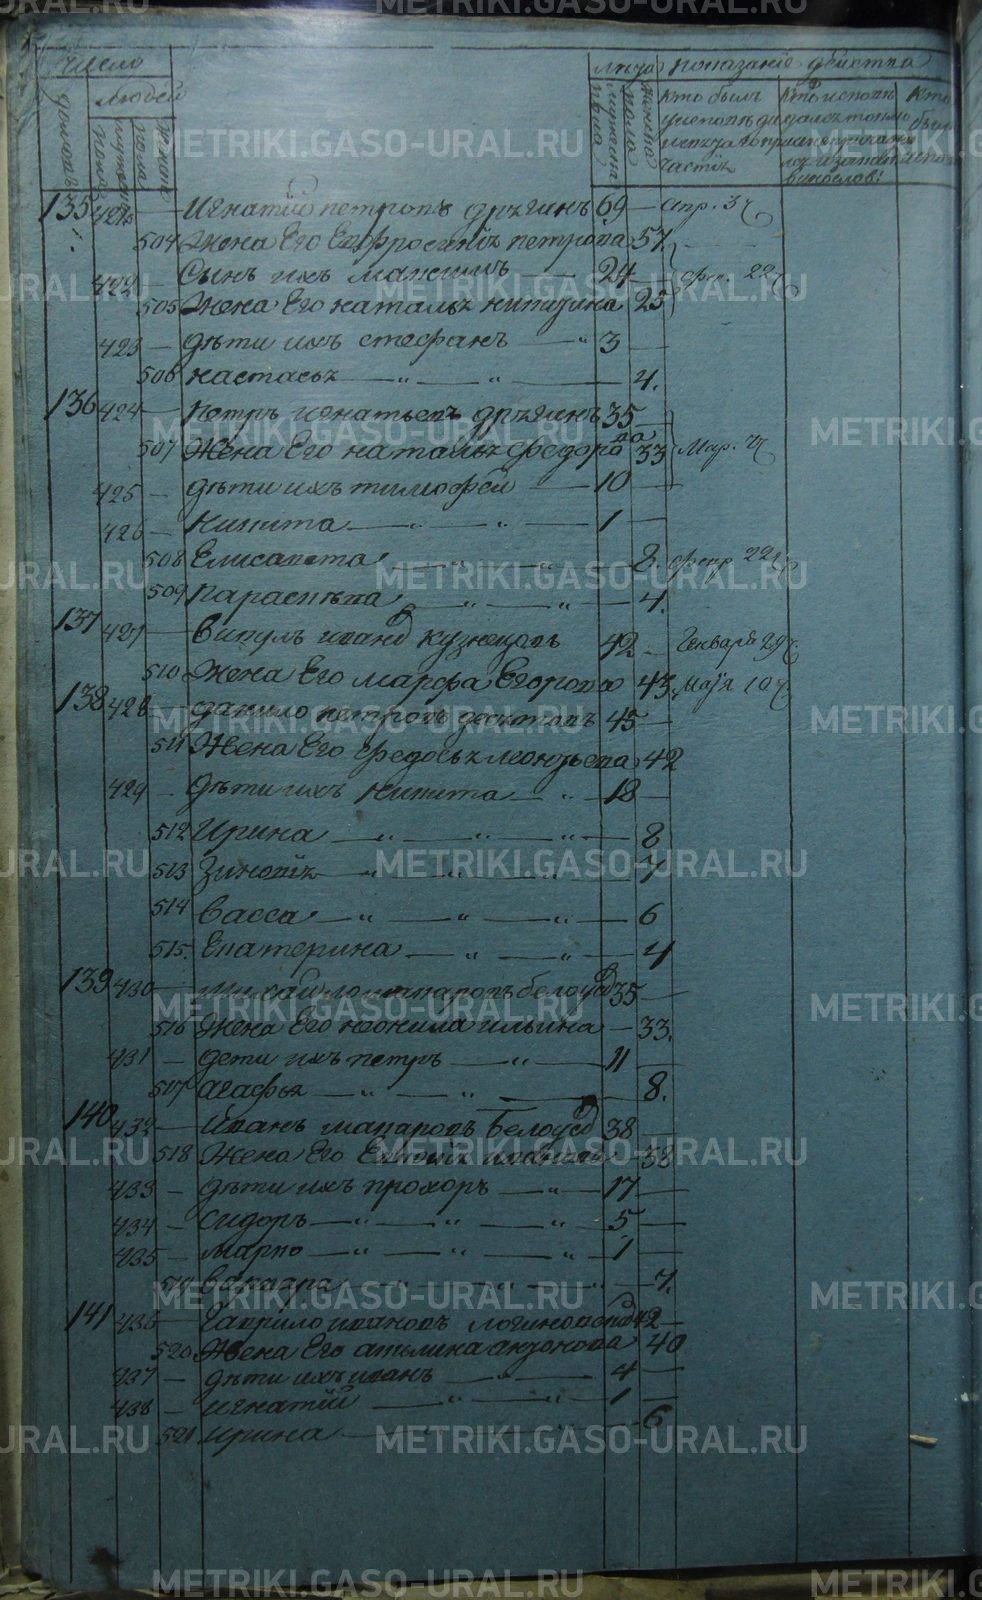 число
людей
домовъ
мужеска
пола
женска
лѣта
показание действа
мужеска
пола
женска
пола
кто былъ
у исповѣди
и святаго при
частия
кто исповѣ
дался токмо
винословъ:
кто
135 421 — Игнатий петровъ дрягинъ 69 — апр. 3ч
504 Жена Его Евфросиния петрова 57
422 — Сынъ ихъ максимъ — 24 — фев. 22ч
505 Жена Его наталья никитина 25
423 — дѣти ихъ стефанъ — " 3 —
506 настасья — " — " — 4.
136 424 — петръ игнатьевъ дрягинъ 35 —
507 Жена Его наталья федорова 33 Мар. 7ч
425 — дѣти ихъ тимофей — 10 —
426 — никита — " — " — 1 —
508 Елисавета — " — " — 8. февр. 22ч
509 параскѣва — " — " — 4.
137 427 — викулъ иванов кузнецовъ 42 — Генваря 29ч.
510 Жена Его марфа Егорова 43. Майя 10ч
138 428 — данило петровъ 45 —
511 Жена Его федосья леонтьева 42
429 — дѣти ихъ никита — " — 18 —
512 Ирина — " — " — " — 8
513 Зиновия — " — " — " — 7
514 Васса — " — " — " — 6
515. Екатерина — " — " — 4
139 430 — михайло макаровъ белоусов 35 —
516 Жена Его неонила ильина — 33.
431 — дети ихъ петръ — " — 11 —
517 агафья — " — " — 8.
140 432 — Иванъ макаровъ белоусов 38 —
518 Жена Его 38
433 — дѣти ихъ прохоръ — " — 17 —
434 — Сидоръ — " — " — " — 5 —
435 — марко — " — " — " — 1 —
519 Варвара — " — " — " — 7.
141 436 — Гаврило ивановъ 42 —
520 Жена Его акилина антонова 40
437 — дѣти ихъ иванъ — " — 4 —
438 — игнатий — " — " — 1 —
521 ирина — " — " — 6
METRIKI.GASO-URAL.RU